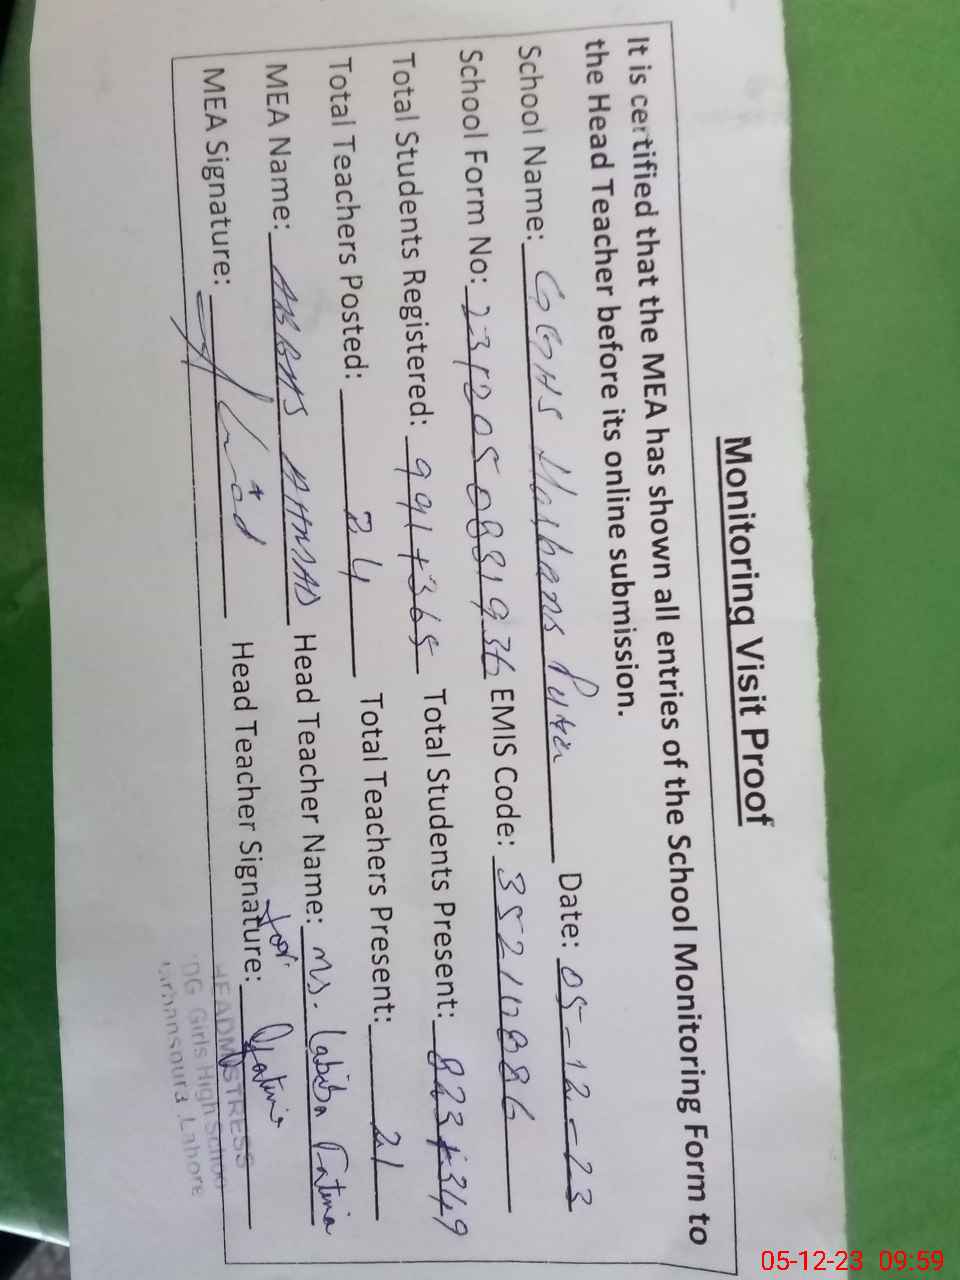 Monitoring Visit Proof
It is certified that the MEA has shown all entries of the School Monitoring Form to
the Head Teacher before its online submission.
School Name: GGHS Date: 05-12-23
School Form No: EMIS Code:
Total Students Registered: 991+365 Total Students Present: 823+349
Total Teachers Posted: 24 Total Teachers Present: 21
MEA Name: ABBAS Head Teacher Name: Ms. Labiba Fatima
MEA Signature: Head Teacher Signature: for Fatima
HEADMISTRESS
Girls High School
Lahore
05-12-23 09:59